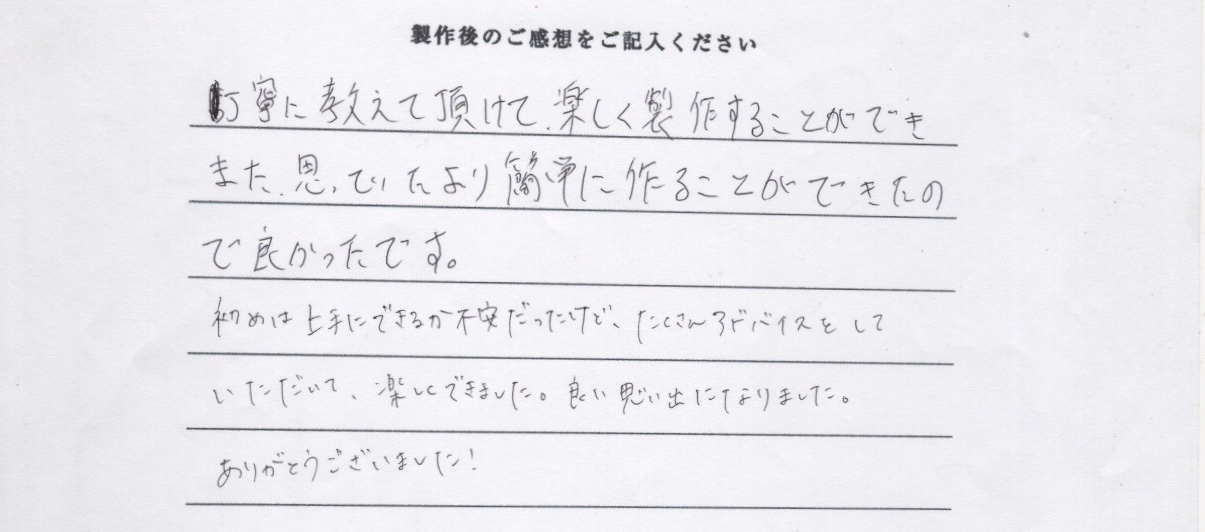 製作後のご感想をご記入ください
丁寧に教えて頂けて、楽しく製作することができ
また、思っていたより簡単に作ることができたの
で良かったです。
初めは上手にできるか不安だったけど、たくさんアドバイスをして
いただいて、楽しくできました。良い思い出になりました。
ありがとうございました!